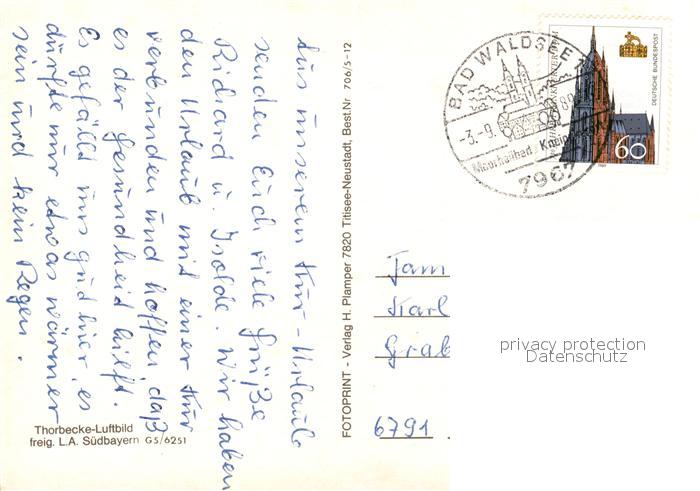 Aus unserem Kur-Urlaub
senden Euch viele Grüße
Richard u. Isolde. Wir haben
den Urlaub mit einer Kur
verbunden und hoffen, daß
es der Gesundheid hilft.
Es gefällt uns gud hier, es
dürfte nur etwas wärmer
sein und kein Regen.
Thorbecke-Luftbild
freig. L.A. Südbayern G5/6251
FOTOPRINT - Verlag H. Plamper 7820 Titisee-Neustadt, Best.Nr. 706/5-12
BAD WALDSEE
-3.-9.
89
Moorheilbad
7967
DEUTSCHE BUNDESPOST
60
Fam
Karl
Grab
6791
privacy protection
Datenschutz